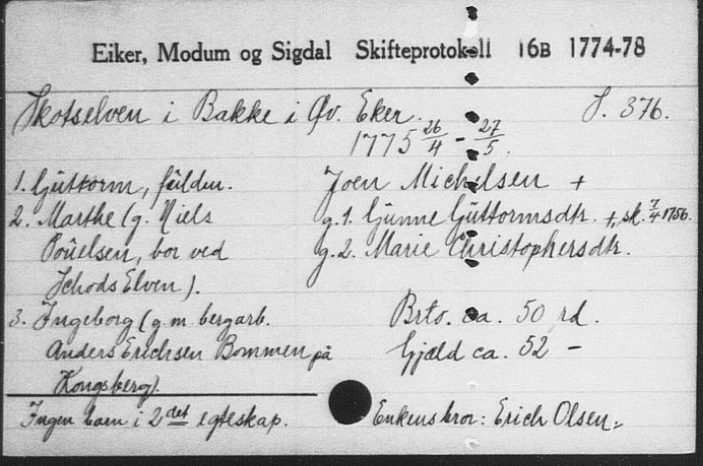 Eiker, Modum og Sigdal Skifteprotokoll 16B 1774-78
Skotselven i Bakke i Øv. Eker. S. 376.
1775 26/4 - 27/5.
1. Guttorm, fulldm. Joen Michelsen +
2. Marthe (g. Niels g. 1. Gunne Guttormsdtr. +, sk. 7/4 1756.
Poulsen, bor ved g. 2. Marie Christophersdtr.
Schods Elven).
3. Ingeborg (g.m. bergarb. Brto. ca. 50 rd.
Anders Erichsen Bommen på Gjæld ca. 52 -
Kongsberg).
Ingen barn i 2det egteskap. Enkens bror: Erich Olsen.